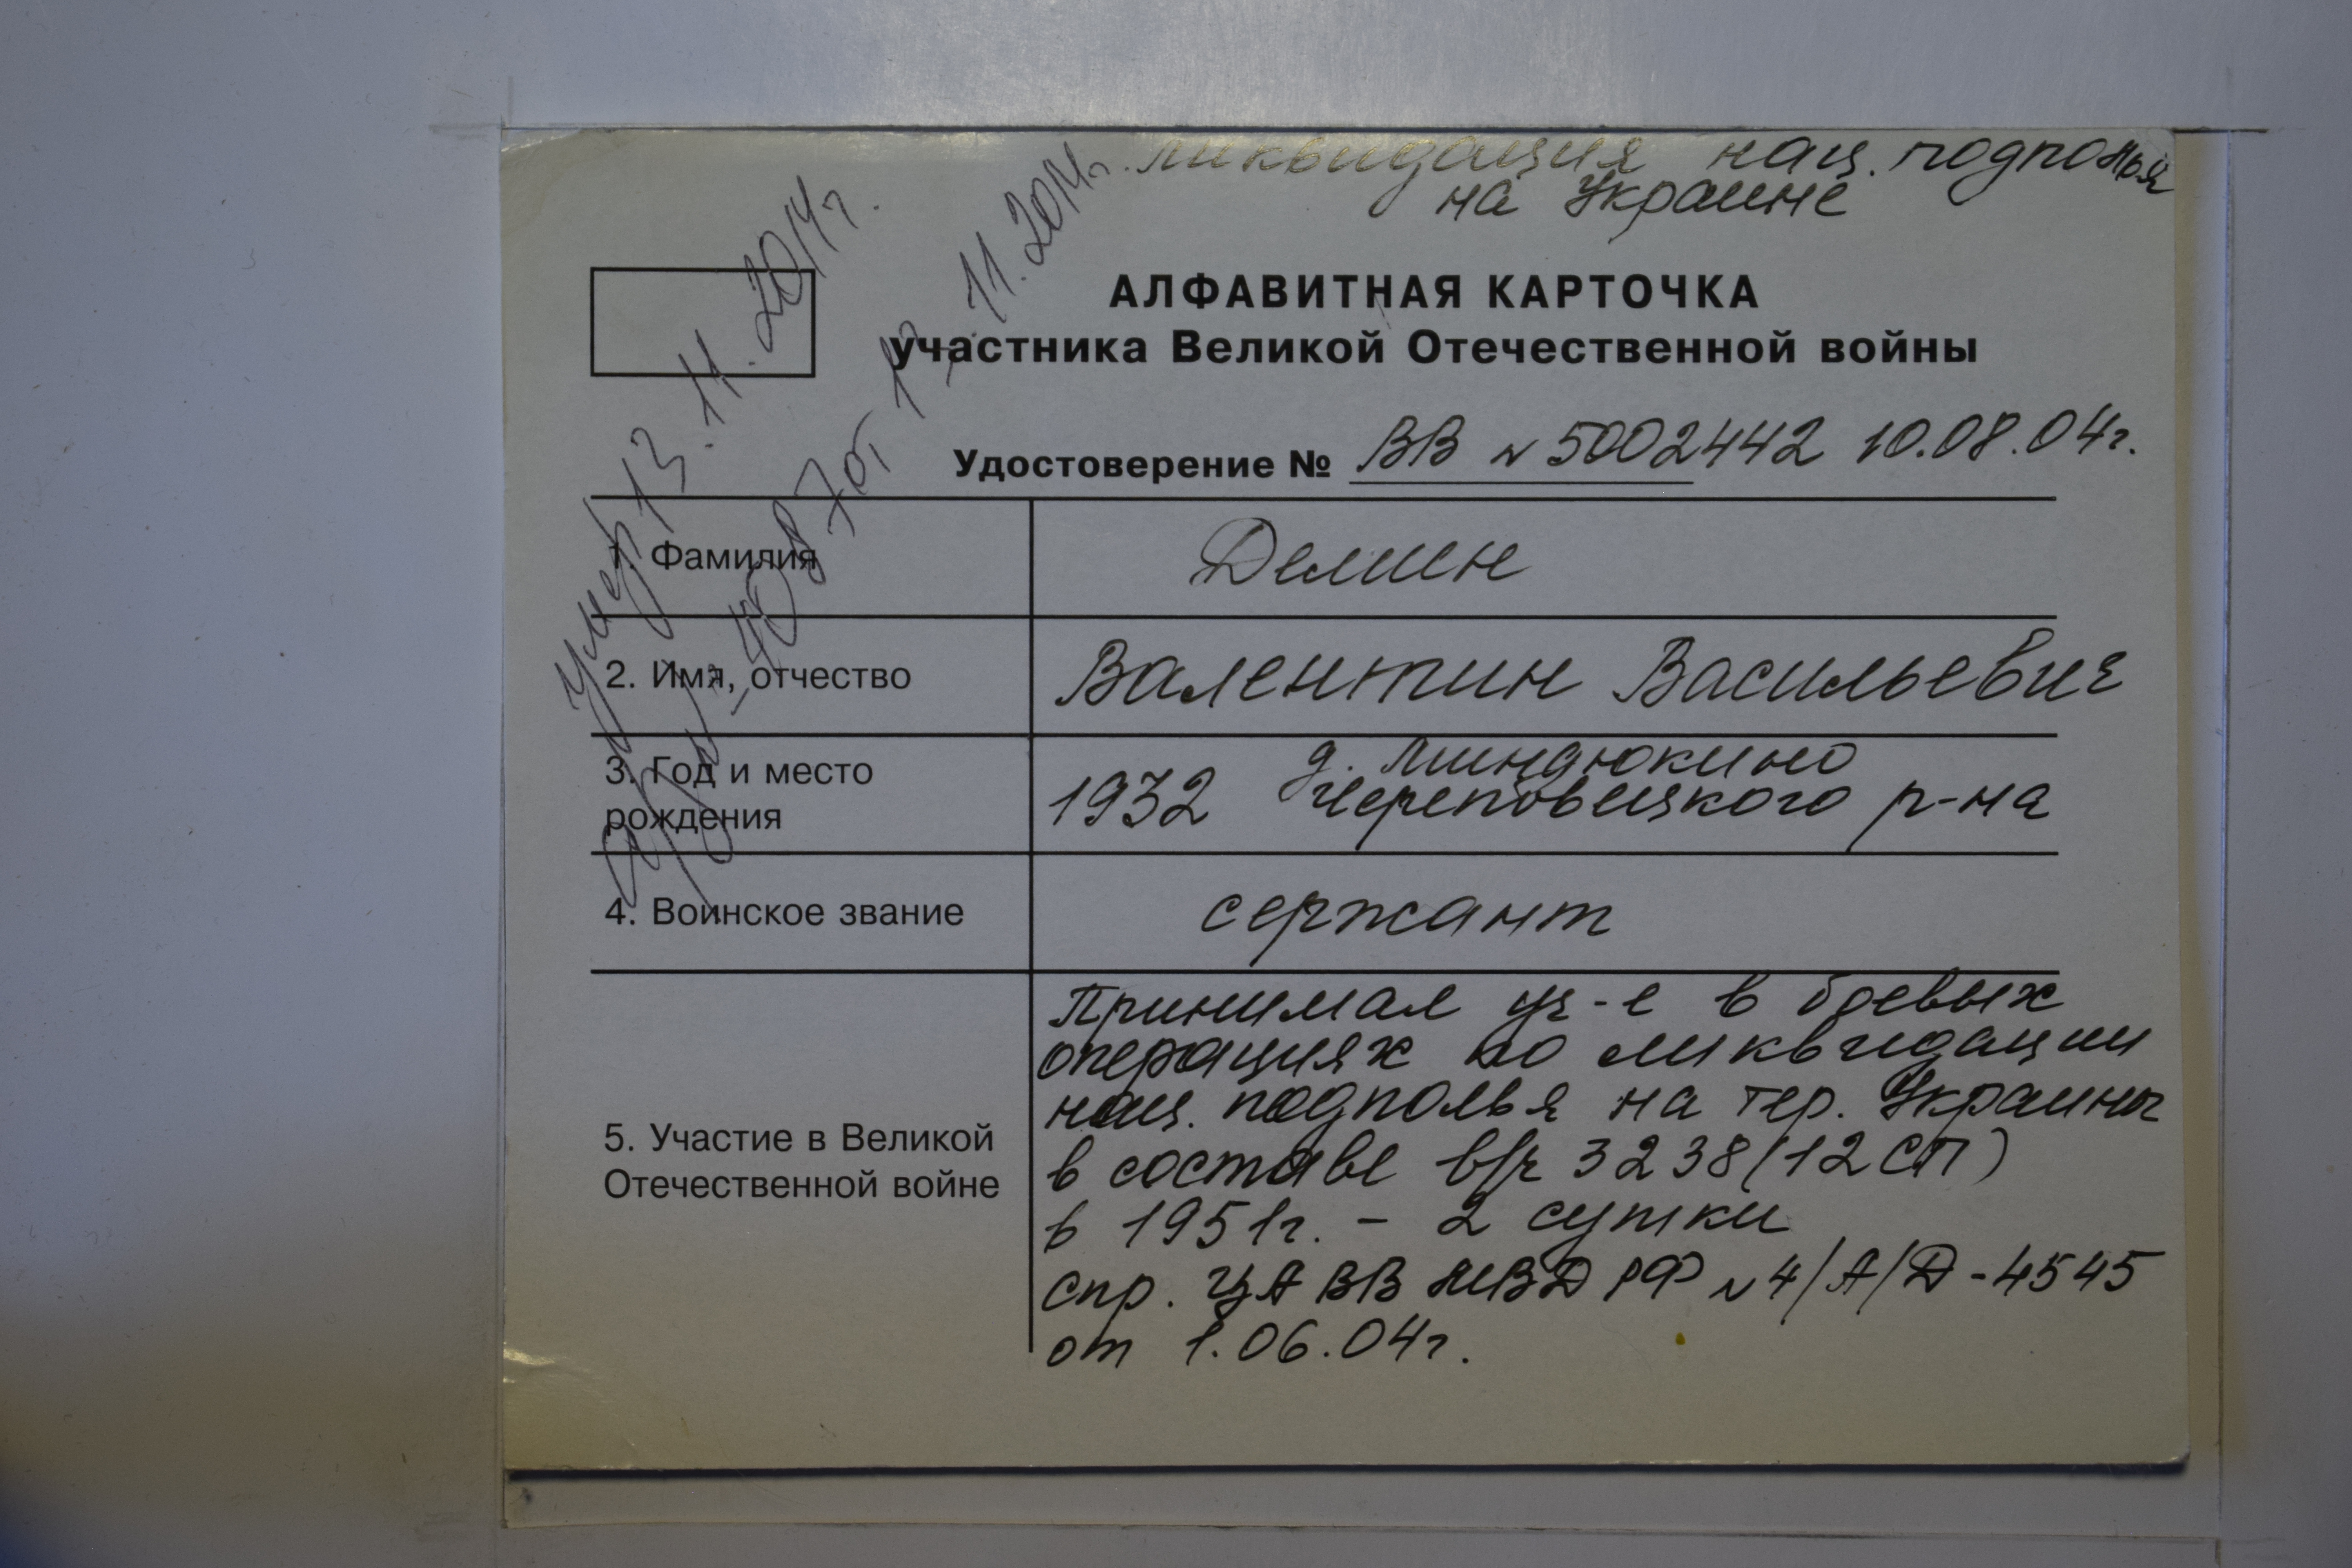 ликвидация нац. подполья
на Украине
АЛФАВИТНАЯ КАРТОЧКА
участника Великой Отечественной войны
Удостоверение № ВВ № 5002442 10.08.04г.
Умер 13.11.2014г.
11.2014г.
1. Фамилия
Демин
2. Имя, отчество
Валентин Васильевич
3. Год и место
рождения
1932 д. Миндюкино
Череповецкого р-на
4. Воинское звание
сержант
5. Участие в Великой
Отечественной войне
Принимал уч-е в боевых
операциях по ликвидации
нац. подполья на тер. Украины
в составе в/ч 3238 (12 СП)
в 1951г. - 2 сутки
спр. ЦА ВВ МВД РФ № 4/А/Д-4545
от 1.06.04г.